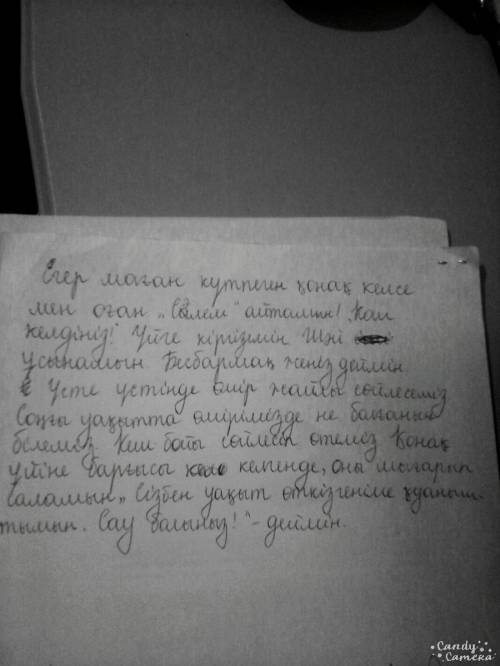 Егер маған күтпеген қонақ келсе
мен оған „Сәлем" айтамын! Қош
келдіңіз! Үйге кіргіземін Шәй
ұсынамын Бесбармақ жеңіз деймін
Үсте үстінде өмір жайлы сөйлесеміз
Соңғы уақытта өмірімізде не болғанын
білеміз Кеш бойы сөйлесіп өтеміз Қонақ
үйіне барғысы келгенде, оны шығарып
саламын „ Сізбен уақыт өткізгеніме қуаныш-
тымын. Сау болыңыз!" - деймін.
Candy
Camera